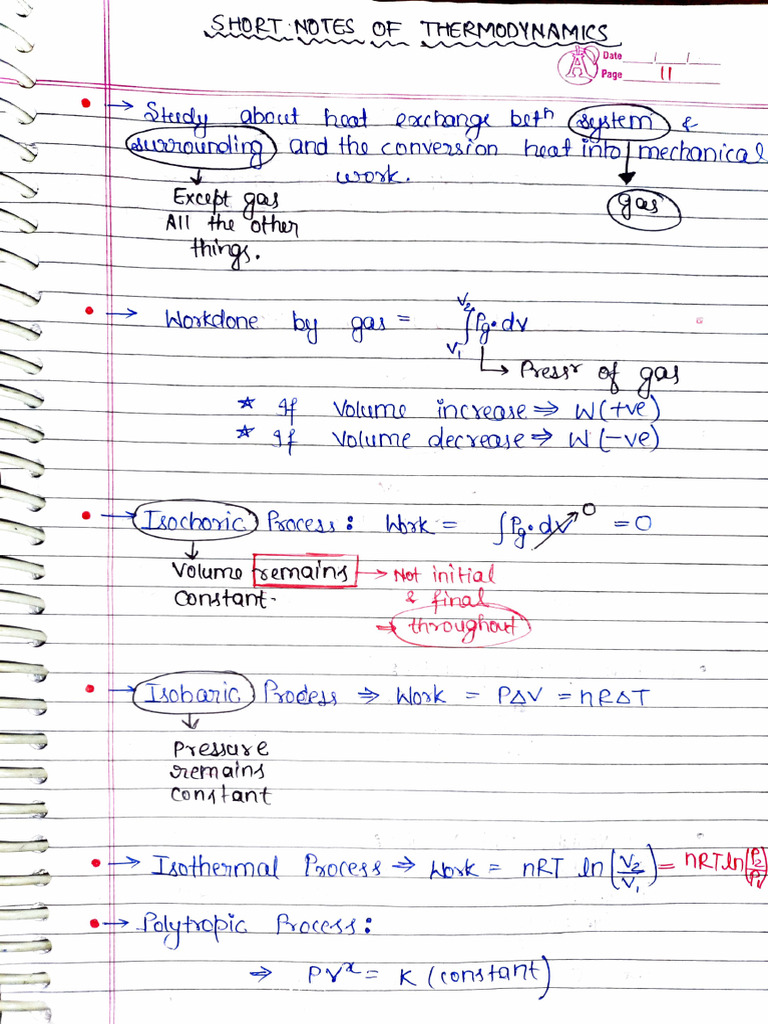 SHORT NOTES OF THERMODYNAMICS
Date / /
Page 11
→ Study about heat exchange betⁿ system &
surrounding and the conversion heat into mechanical
work.
Except gas
All the other
things.
gas
→ Workdone by gas = ∫_{V₁}^{V₂} Pg·dv
↳ Pressr of gas
★ If Volume increase ⇒ W(+ve)
★ If Volume decrease ⇒ W(-ve)
→ Isochoric Process: Work = ∫Pg·dv↗0 = 0
Volume remains → Not initial
constant. & final
→ throughout
→ Isobaric Process ⇒ Work = PΔV = nRΔT
Pressure
remains
constant
→ Isothermal Process ⇒ Work = nRT ln(V₂/V₁) = nRT ln(P₂/P₁)
→ Polytropic Process:
⇒ PVˣ = K (constant)